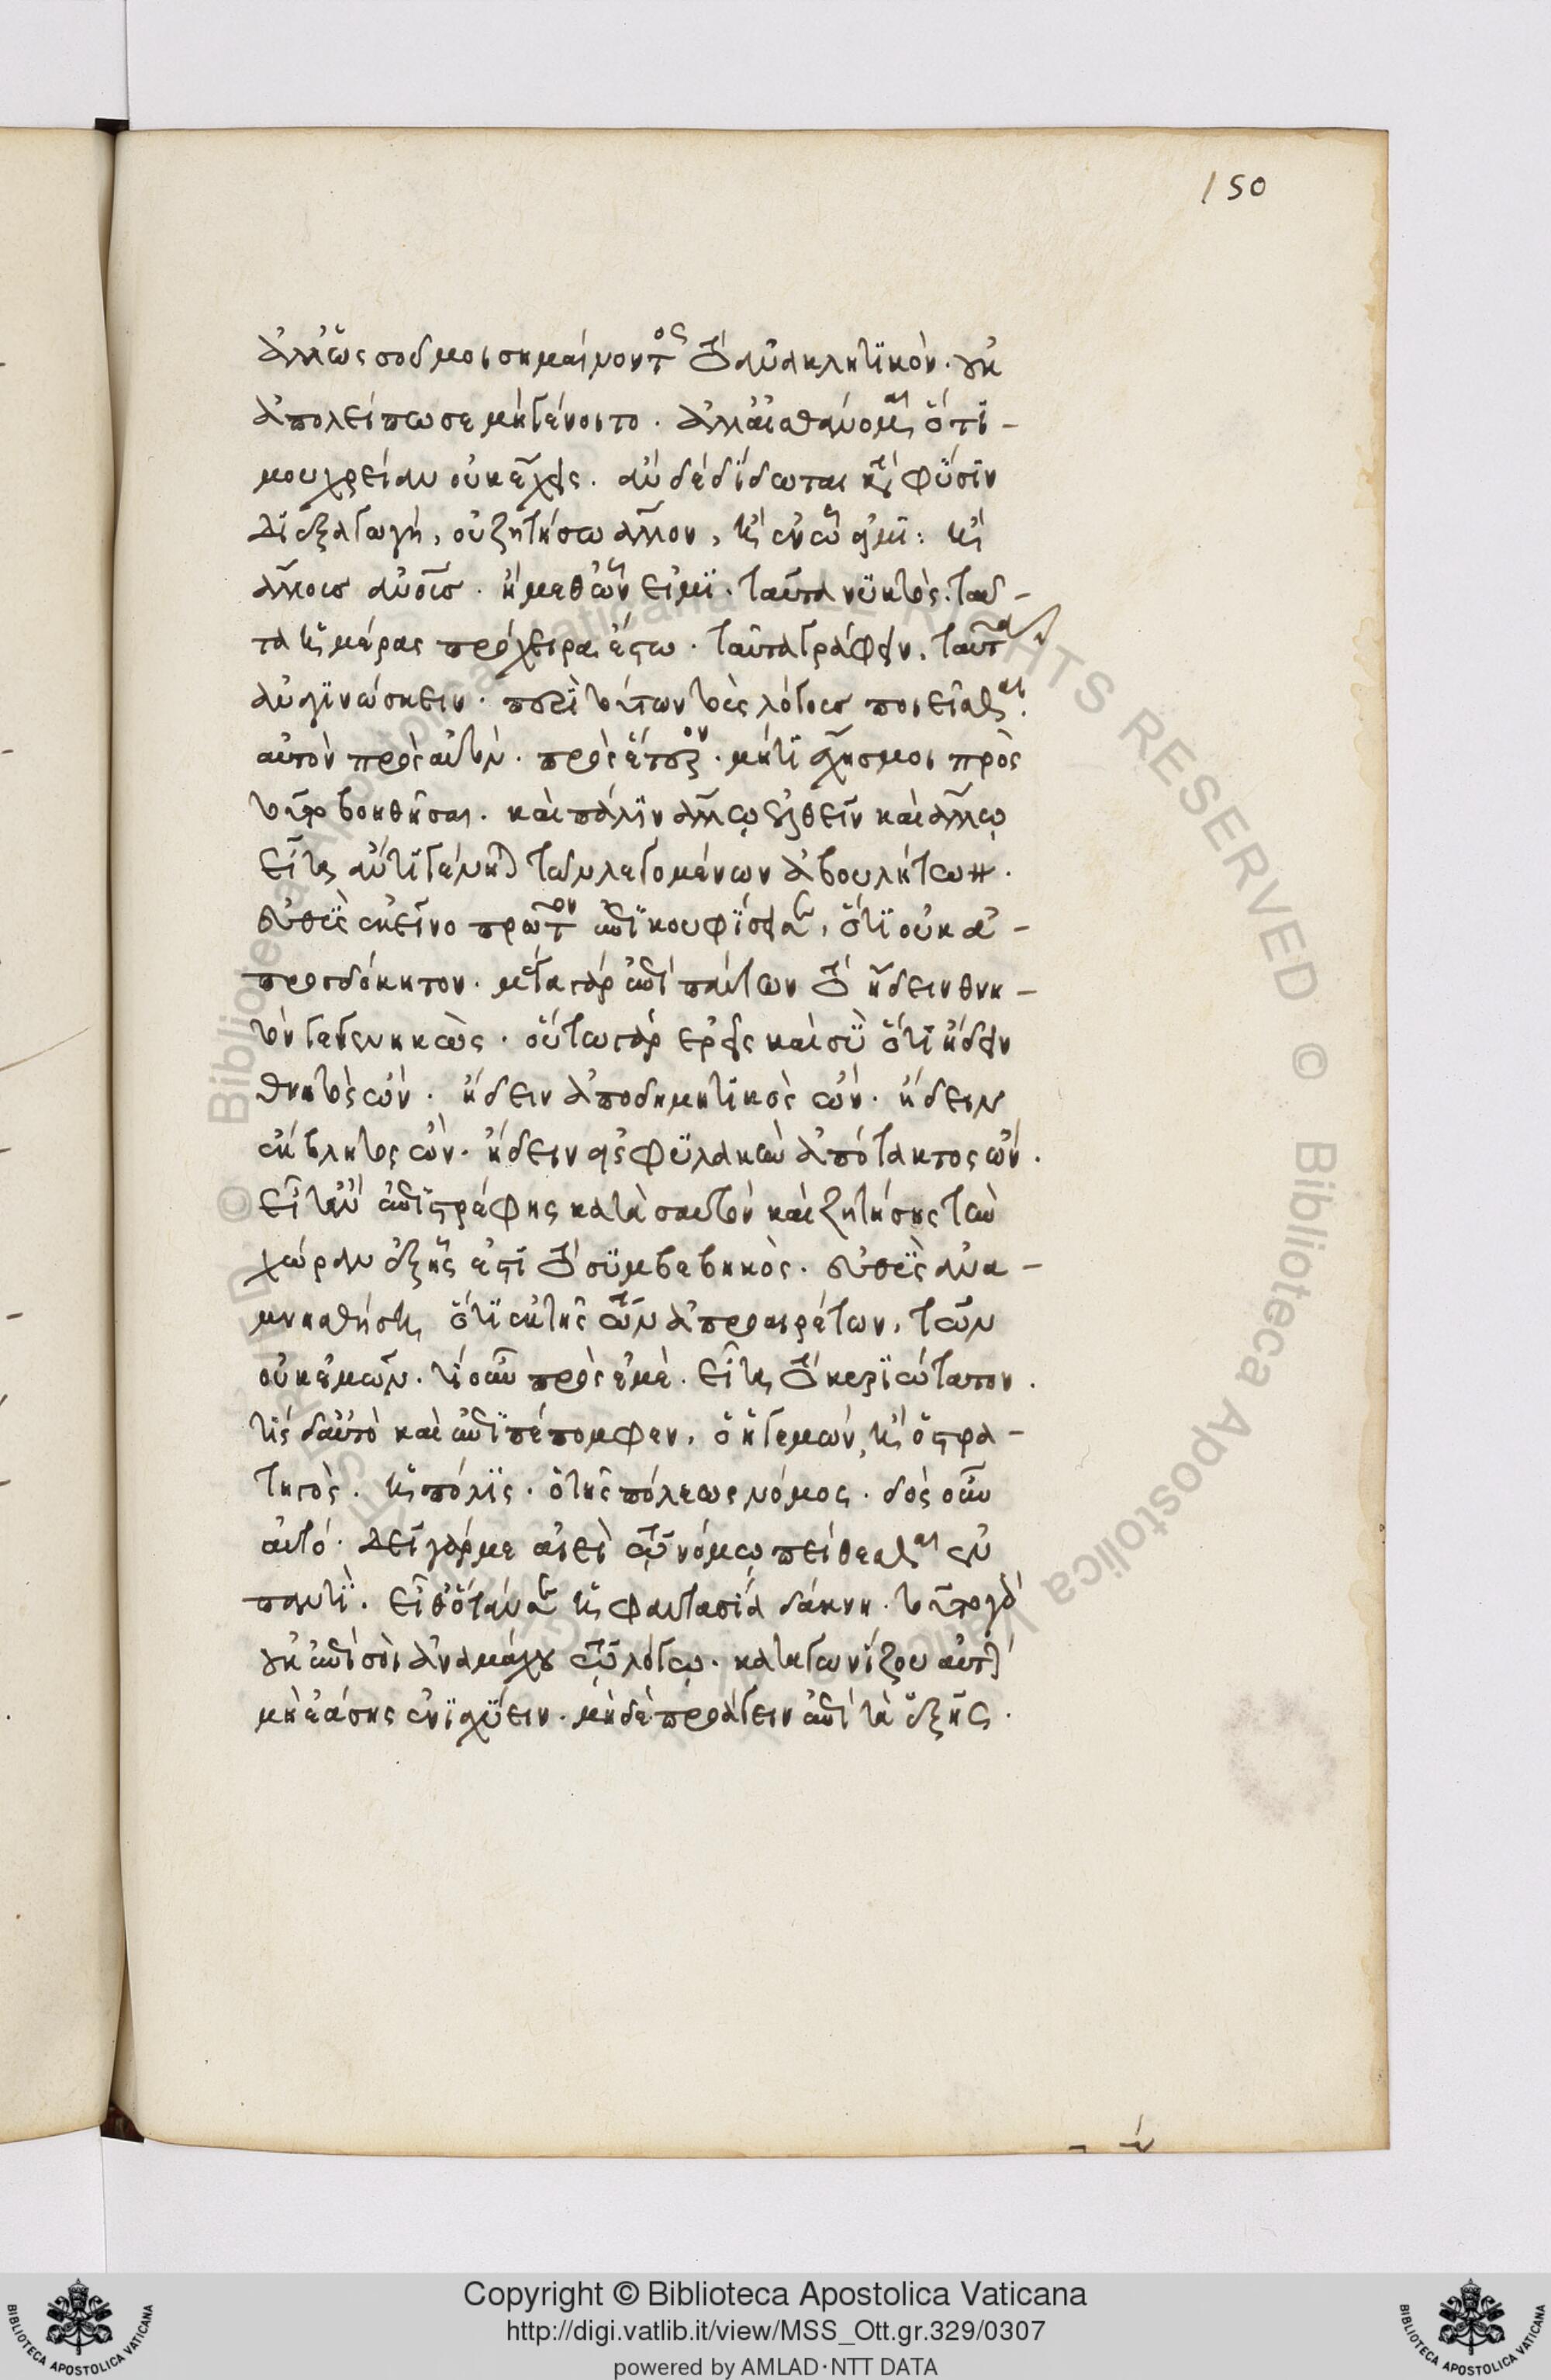 150
ἀλλ' ὥς σου μοι σημαίνοντος τὸ ἀνακλητικὸν. οὐκ
ἀπολείπω σε μὴ γένοιτο. ἀλλ' αἰσθάνομαι ὅτι -
μου χρείαν οὐκ ἔχεις. ἂν δὲ δίδωται κατὰ φύσιν
διεξαγωγὴ, οὐ ζητήσω ἄλλον, ἢ ἐν ᾧ εἰμι: ἢ
ἄλλους ἀνθρώπους. ἢ μεθ' ὧν εἰμι. ταῦτα νυκτὸς. ταῦ -
τα ἡμέρας πρόχειρα ἔστω. ταῦτα γράφειν, ταῦτα
ἀναγινώσκειν. περὶ τούτων τοὺς λόγους ποιεῖσθαι.
αὐτὸν πρὸς αὑτὸν. πρὸς ἕτερον. μήτι ἔχεις μοι πρὸς
τοῦτο βοηθῆσαι. καὶ πάλιν ἄλλῳ ἐλθεῖν καὶ ἄλλῳ
εἶτα ἄν τι γένηται τῶν λεγομένων ἀβουλήτων.
εὐθὺς ἐκεῖνο πρῶτον ἐπικουφίσει σε, ὅτι οὐκ ἀ -
προσδόκητον. μέγα γὰρ ἐπὶ πάντων τὸ ᾔδειν θνη -
τὸν γεγεννηκὼς. οὕτω γὰρ ἐρεῖς καὶ σὺ ὅτι ᾔδειν
θνητὸς ὤν. ᾔδειν ἀποδημητικὸς ὤν. ᾔδειν
ἔκβλητος ὤν. ᾔδειν εἰς φυλακὴν ἀπότακτος ὤν.
εἶτ' ἂν ἐπιστρέφῃς κατὰ σαυτὸν καὶ ζητήσῃς τὴν
χώραν ἐξ ἧς ἐστὶ τὸ συμβεβηκὸς. εὐθὺς ἀνα -
μνησθήσῃ ὅτι ἐκ τῆς τῶν ἀπροαιρέτων, τῶν
οὐκ ἐμῶν. τί οὖν πρὸς ἐμὲ. εἶτα τὸ κυριώτατον.
τίς δ' αὐτὸ καὶ ἐπιπέπομφεν, ὁ ἡγεμὼν, ἢ ὁ στρα -
τηγὸς. ἡ πόλις. ὁ τῆς πόλεως νόμος. δὸς οὖν
αὐτό. δεῖ γάρ με αἰεὶ τῷ νόμῳ πείθεσθαι ἐν
παντὶ. εἶθ' ὅταν σε ἡ φαντασία δάκνῃ. τοῦτο γὰρ
οὐκ ἐπὶ σοὶ ἀναμάχου τῷ λόγῳ. καταγωνίζου αὐτὴν
μὴ ἐάσῃς ἐνισχύειν. μηδὲ προάγειν ἐπὶ τὰ ἑξῆς.
Copyright © Biblioteca Apostolica Vaticana
http://digi.vatlib.it/view/MSS_Ott.gr.329/0307
powered by AMLAD·NTT DATA